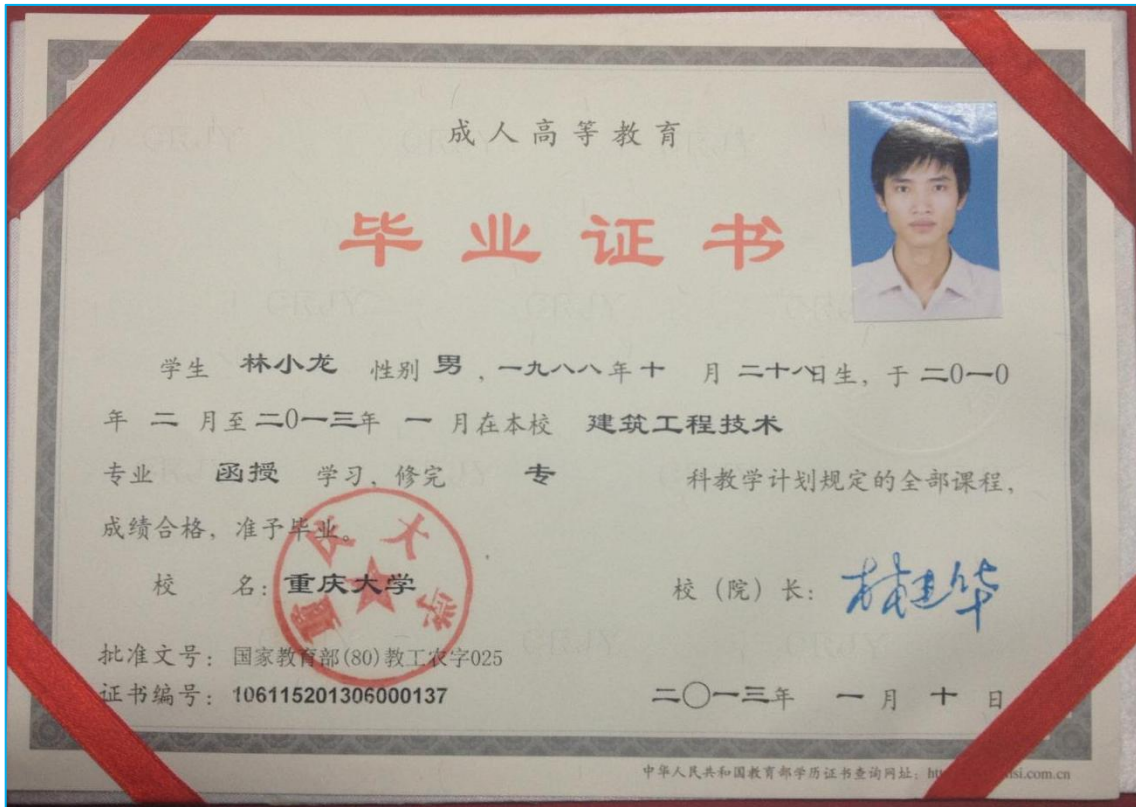 成人高等教育
毕业证书
学生 林小龙 性别 男，一九八八年十 月 二十八日生，于 二0一0
年 二 月至二0一三年 一 月在本校 建筑工程技术
专业 函授 学习，修完 专 科教学计划规定的全部课程，
成绩合格，准予毕业。
校 名：重庆大学
校（院）长：林建华
重庆大学
批准文号：国家教育部(80)教工农字025
证书编号：106115201306000137
二〇一三年 一 月 十 日
中华人民共和国教育部学历证书查询网址：